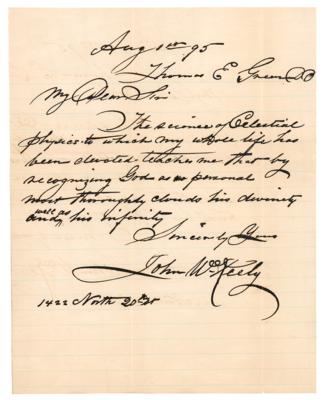 Aug 1st 95
Thomas E Green DD
My Dear Sir
The science of Celestial
physics to which my whole life has
been devoted teaches me that by
recognizing God as a personal
most thoroughly clouds his divinity
well as
and his infinity
Sincerly Yours
John W Keely
1422 North 20th St